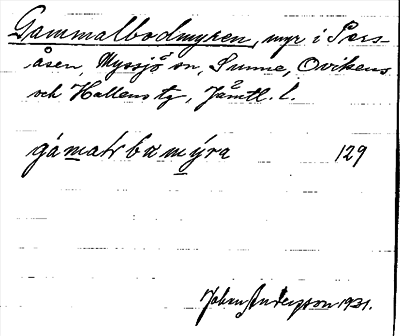 Gammalbodmyren, myr i Pers-
åsen, Myssjö sn, Sunne, Ovikens
och Hallens tg, Jämtl. l.
gámatr ba mýra 129
Johan Anderzson 1931.